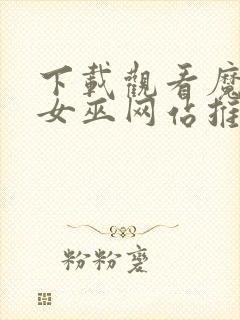 下載觀看魔
女巫网佔推
粉粉裦